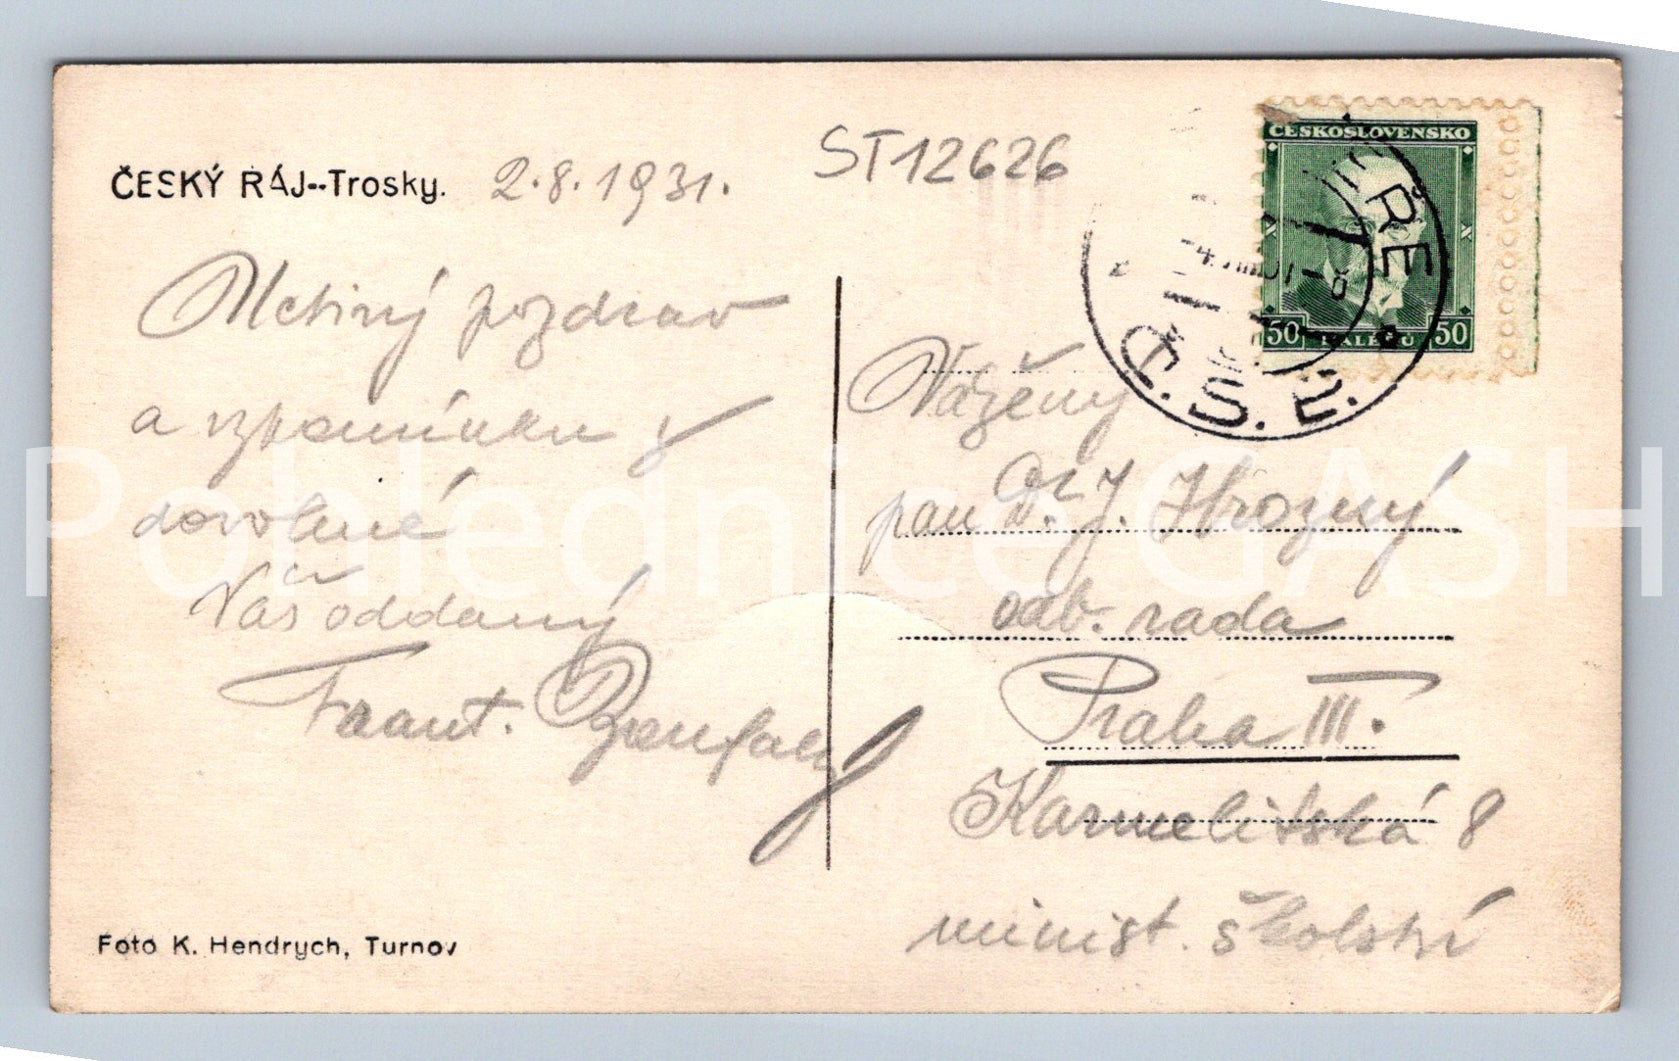 ČESKÝ RÁJ--Trosky. 2.8.1931.
ST12626
Uctivý pozdrav
a vzpomínku z
dovolené
Váš oddaný
Frant.
Foto K. Hendrych, Turnov
ČESKOSLOVENSKO
50 HALÉŘŮ 50
Č.S.2.
Vážený
pan Dr. J. Hrozný
odb. rada
Praha III.
Karmelitská 8
minist. školství
Pohlednice GASH